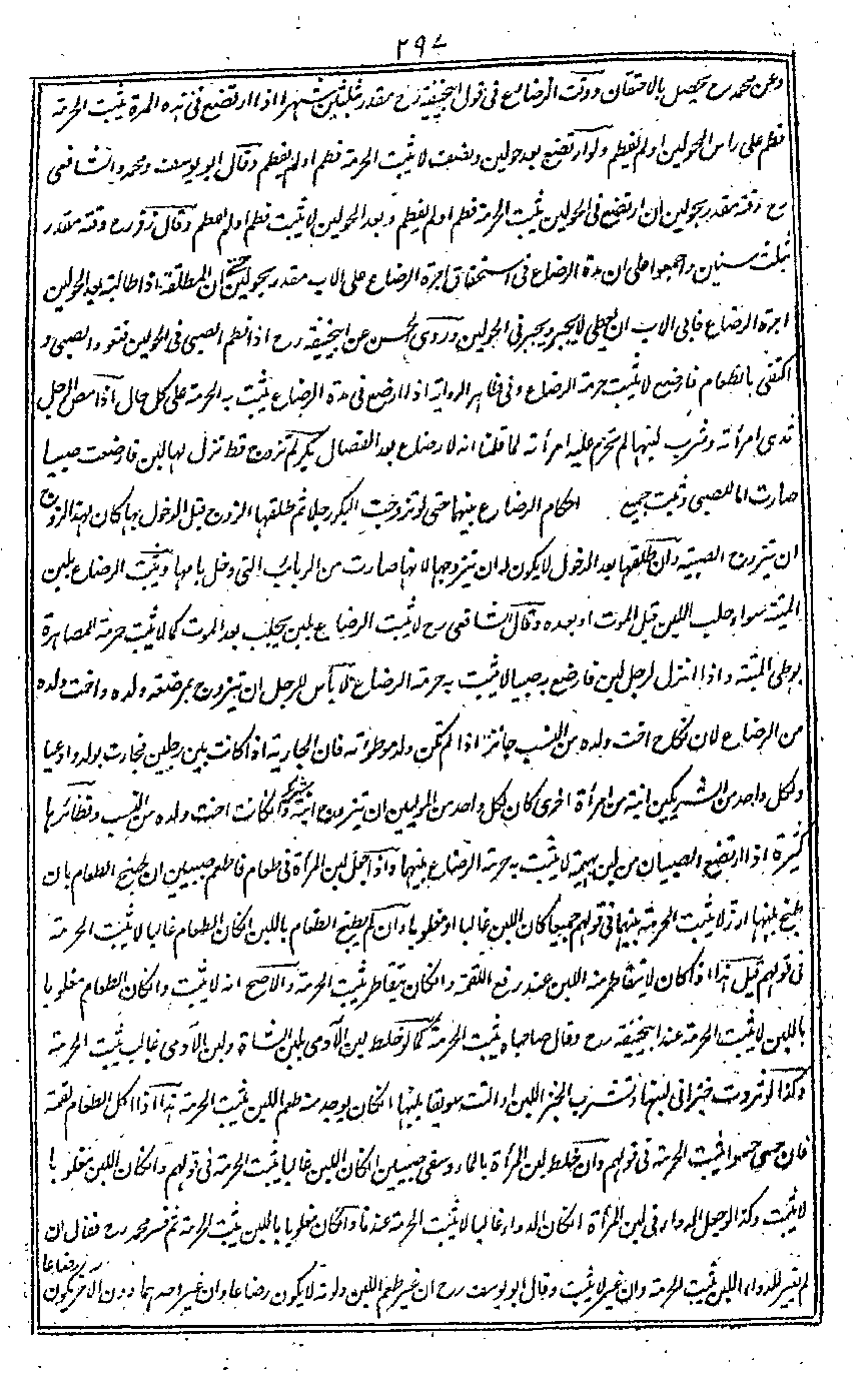 ۲۹۷
وعن محمد رح يحصل بالاحتقان ووقت الرضاع في قول ابيحنيفة رح مقدر بثلثين شهرا اذا ارتضع في هذه المدة يثبت الحرمة
فطم على راس الحولين او لم يفطم ولو ارتضع بعد حولين ونصف لا يثبت الحرمة فطم او لم يفطم وقال ابو يوسف ومحمد والشافعي
رح وقته مقدر بحولين ان ارتضع في الحولين يثبت الحرمة فطم او لم يفطم وبعد الحولين لا يثبت فطم او لم يفطم وقال زفر رح وقته مقدر
بثلث سنين واجمعوا على ان مدة الرضاع في استحقاق اجرة الرضاع على الاب مقدر بحولين حتى ان المطلقة اذا طالبته بعد الحولين
اجرة الرضاع فابى الاب ان يعطي لا يجبر ويجبر في الحولين وروى الحسن عن ابيحنيفة رح اذا فطم الصبي في الحولين فتعود الصبي و
اكتفى بالطعام فارضع لا يثبت حرمة الرضاع وفي ظاهر الرواية اذا ارضع في مدة الرضاع يثبت به الحرمة على كل حال اذا مص الرجل
ثدى امرأته وشرب لبنها لم تحرم عليه امرأته لما قلنا انه لا رضاع بعد الفصال بكر لم تزوج قط نزل لها لبن فارضعت صبيا
صارت اما للصبي وثبت جميع احكام الرضاع بينهما حتى لو تزوجت البكر رجلا ثم طلقها الزوج قبل الدخول بها كان لهذا الزوج
ان يتزوج الصبية وان طلقها بعد الدخول لا يكون له ان يتزوجها لانها صارت من الربائب التي دخل بامها ويثبت الرضاع بلبن
الميتة سواء حلب اللبن قبل الموت او بعده وقال الشافعي رح لا يثبت الرضاع بلبن يحلب بعد الموت كما لا يثبت حرمة المصاهرة
بوطي الميتة واذا انزل لرجل لبن فارضع به صبيا لا يثبت به حرمة الرضاع لا بأس للرجل ان يتزوج بمرضعة ولده واخت ولده
من الرضاع لان نكاح اخت ولده من النسب جائز اذا لم تكن ولد موطوأته فان الجارية اذا كانت بين رجلين فجاءت بولد وادعيا
ولكل واحد من الشريكين ابنة من امرأة اخرى كان لكل واحد من المولين ان يتزوج ابنة شريكه وان كانت اخت ولده من النسب ونظائرها
كثيرة اذا ارتضع الصبيان من لبن بهيمة لا يثبت به حرمة الرضاع بينهما واذا جعل لبن المرأة في طعام فاطعم صبيين ان طبخ الطعام بان
طبخ بلبنها ارز لا يثبت الحرمة بينهما في قولهم جميعا كان اللبن غالبا او مغلوبا وان لم يطبخ الطعام باللبن ان كان الطعام غالبا لا يثبت الحرمة
في قولهم قيل هذا اذا كان لا يتقاطر منه اللبن عند رفع اللقمة وان كان يتقاطر يثبت الحرمة والاصح انه لا يثبت وان كان الطعام مغلوبا
باللبن لا يثبت الحرمة عند ابيحنيفة رح وقال صاحباه يثبت الحرمة كما لو خلط لبن الآدمي بلبن الشاة ولبن الآدمي غالب يثبت الحرمة
وكذا لو ثردت خبزا في لبنها وتشرب الخبز اللبن او لتت سويقا بلبنها ان كان يوجد منه طعم اللبن يثبت الحرمة هذا اذا اكل الطعام لقمة
فان حسى حسوا يثبت الحرمة في قولهم وان خلط لبن المرأة بالماء وسقى صبيين ان كان اللبن غالبا يثبت الحرمة في قولهم وان كان اللبن مغلوبا
لا يثبت وكذا لو جعل الدواء في لبن المرأة ان كان الدواء غالبا لا يثبت الحرمة عندنا وان كان مغلوبا باللبن يثبت الحرمة ثم فسر محمد رح فقال ان
لم يغير الدواء اللبن يثبت الحرمة وان غير لا يثبت وقال ابو يوسف رح ان غير طعم اللبن ولونه لا يكون رضاعا وان غير احدهما دون الآخر يكون رضاعا